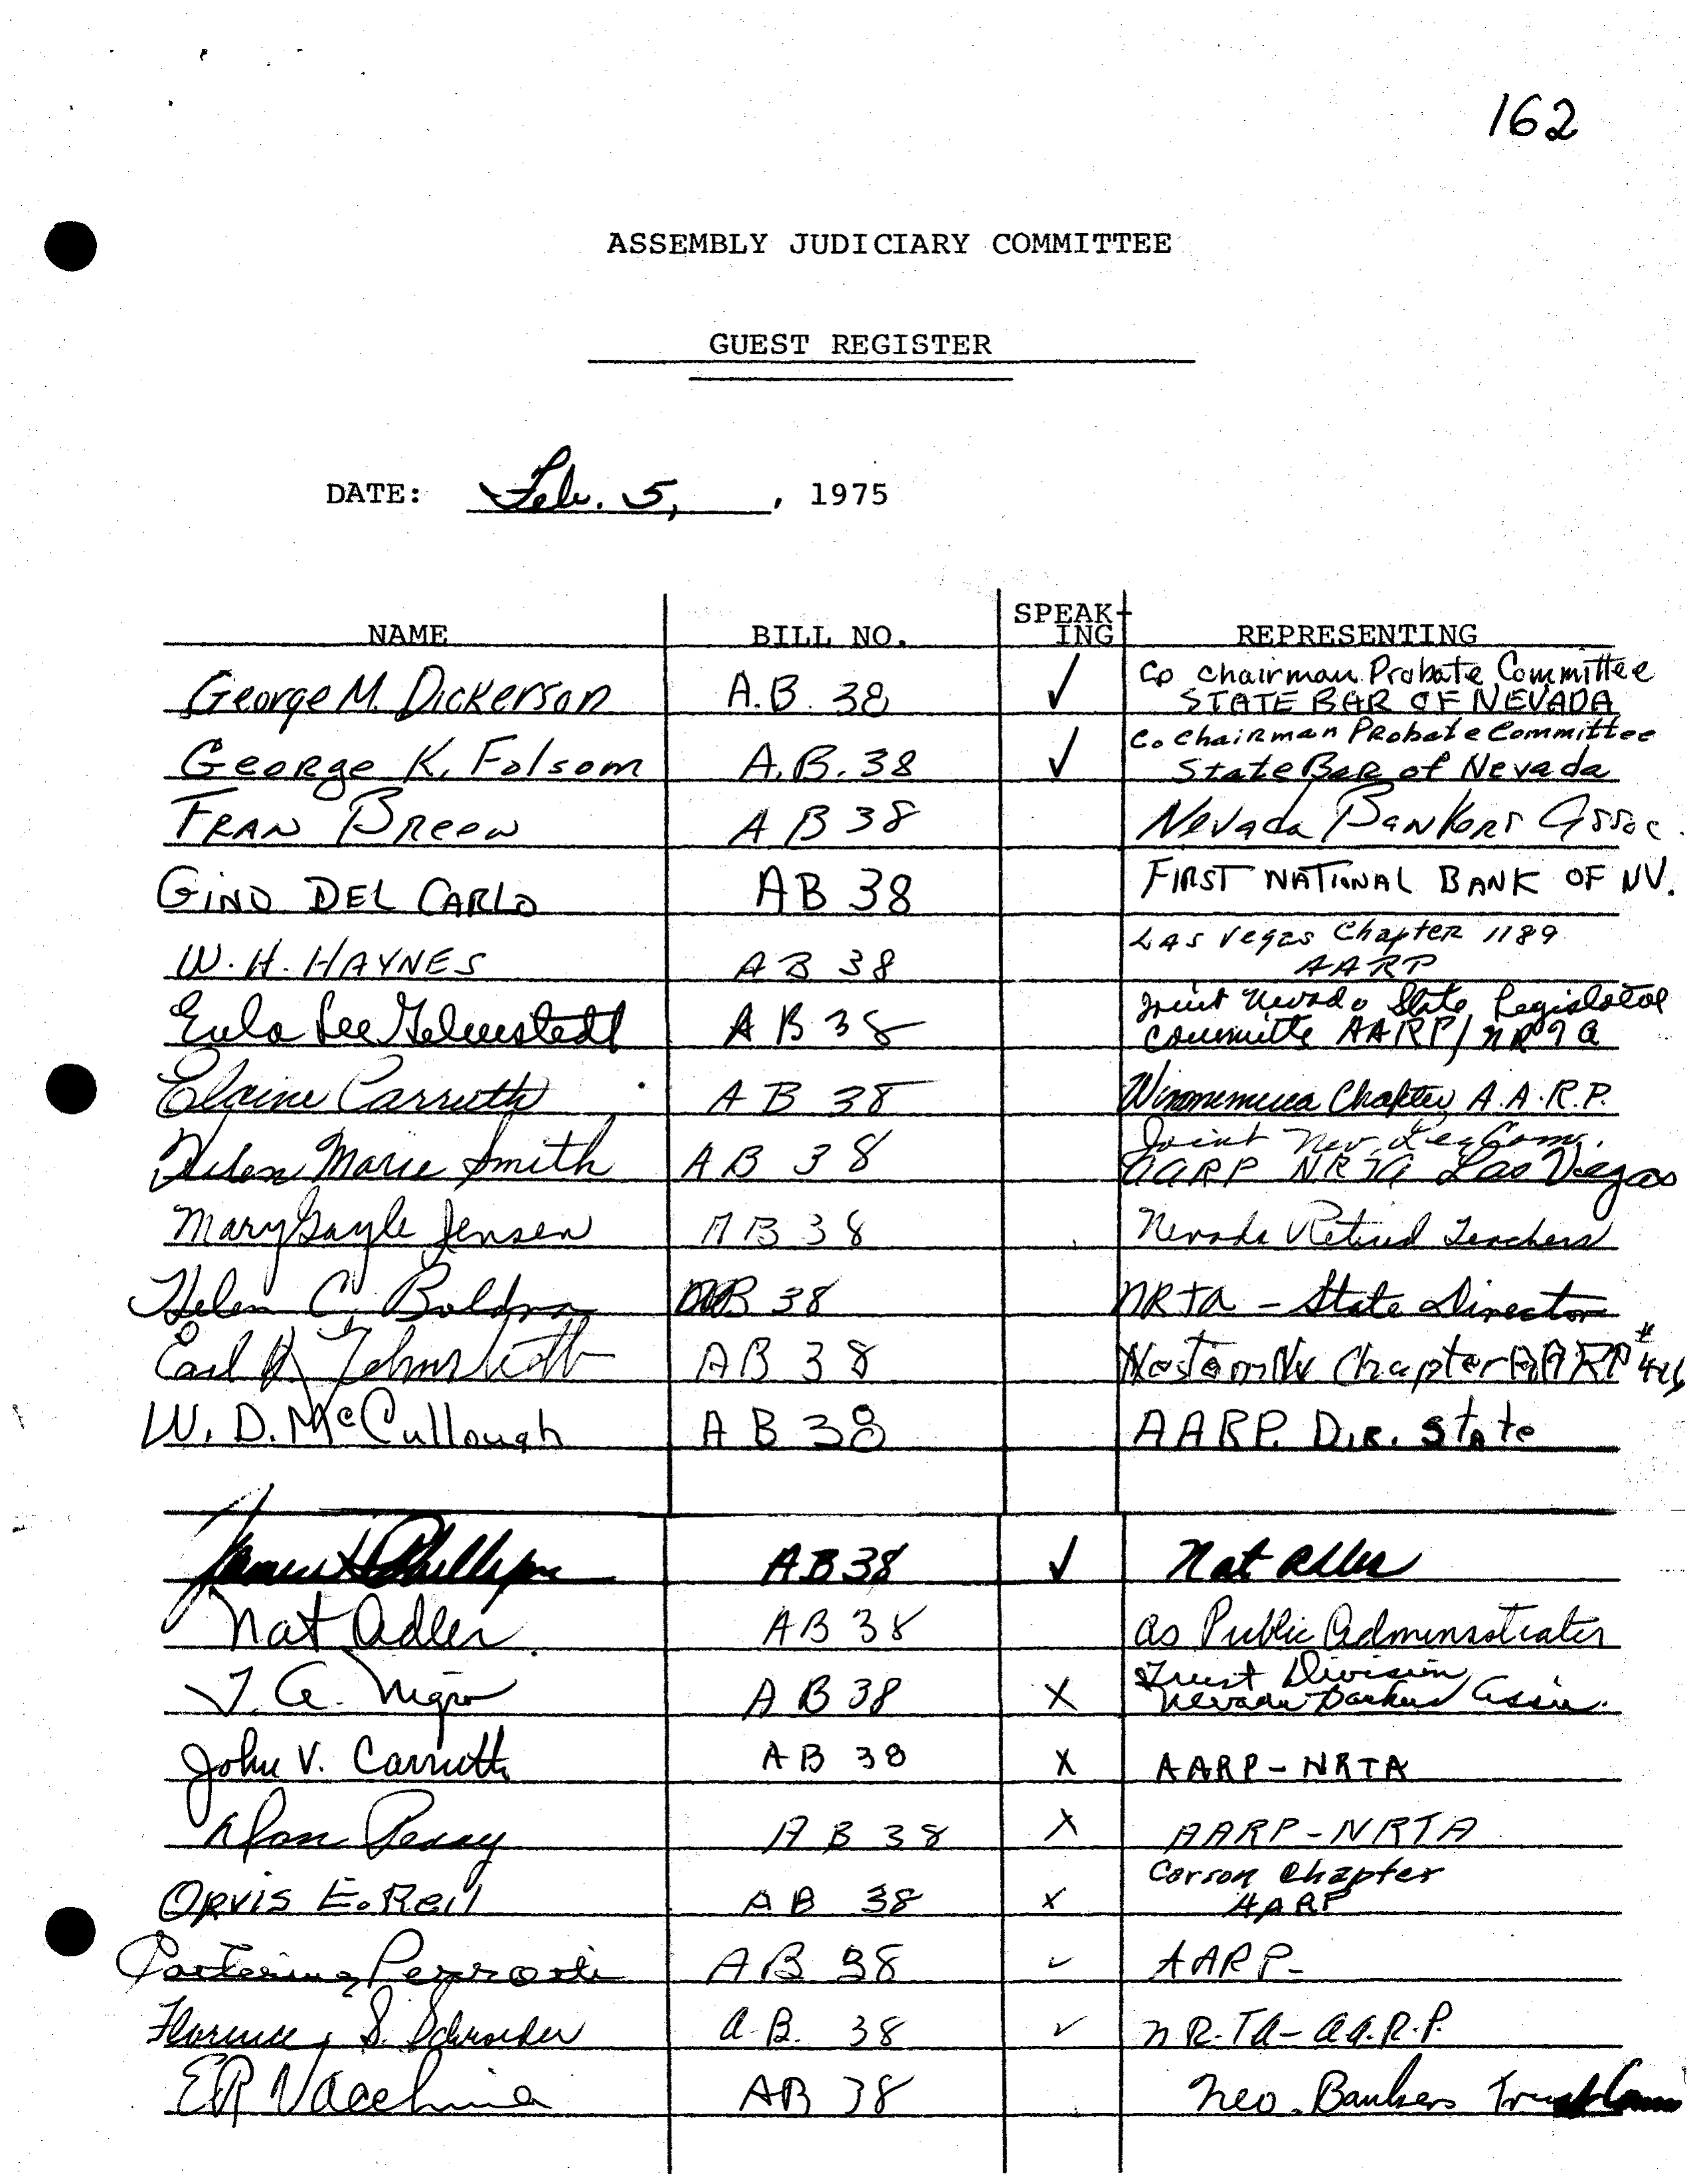 162
ASSEMBLY JUDICIARY COMMITTEE
GUEST REGISTER
DATE: Feb. 5, , 1975
NAME BILL NO. SPEAK-ING REPRESENTING
George M. Dickerson A.B. 38 ✓ Co chairman Probate Committee
STATE BAR OF NEVADA
George K. Folsom A.B. 38 ✓ Co Chairman Probate Committee
State Bar of Nevada
FRAN Breen A B 38 Nevada Bankers Assoc.
GINO DEL CARLO AB 38 FIRST NATIONAL BANK OF NV.
W. H. HAYNES AB 38 LAS Vegas Chapter 1189
AARP
Eula Lee AB 38 Joint Nevada State
Committe AARP/NRTA
Elaine Carruth AB 38 Winnemucca Chapter A.A.R.P.
Helen Marie Smith AB 38 Joint Nev. Leg Com.
AARP NRTA Las Vegas
Mary Gayle Jensen AB 38 Nevada Retired Teachers
Helen C. AB 38 NRTA - State Director
Earl AB 38 Chapter AARP #
W. D. McCullough AB 38 AARP. DIR. State
James Phillips AB 38 ✓ Nat Adler
Nat Adler AB 38 as Public
A. Nigro AB 38 X Trust Division
Nevada Bankers Assn.
John V. Carruth AB 38 X AARP - NRTA
AB 38 X AARP-NRTA
Orvis E. Reil AB 38 X Carson Chapter
AARP
AB 38 ✓ AARP-
Florence S. Schroeder A.B. 38 ✓ NR.TA - AA.R.P.
ER Vacchina AB 38 Bankers